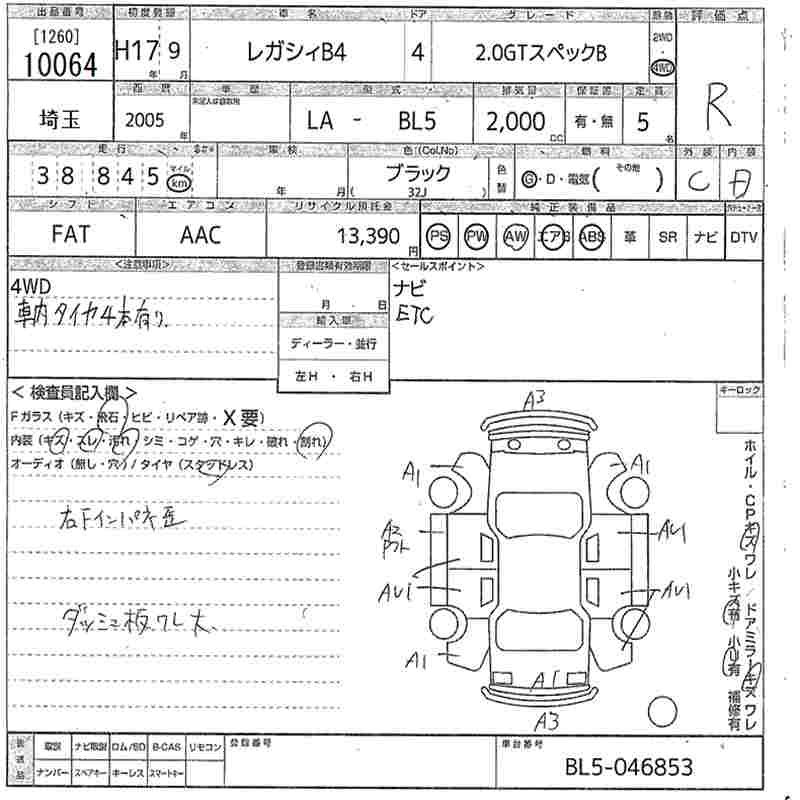 出品番号 初度登録 車名 ドア グレード 評価点
[1260]
10064 H17 9 レガシィB4 4 2.0GTスペックB 2WD 4WD R
年 月
西暦 車歴 型式 排気量 保証書 定員
埼玉 2005 年 LA - BL5 2,000 CC 有・無 5 名
走行 車検 色(Col.No) 燃料 外装 内装
38 845 マイル km 年 月 ブラック (32J) 色替 G・D・電気( その他 ) C D
シフト エアコン リサイクル預託金 純正装備品
FAT AAC 13,390 円 PS PW AW エアB ABS 革 SR ナビ DTV
<注意事項> 登録書類有効期限 <セールスポイント>
4WD ナビ
車内タイヤ4本有り 月 日 ETC
輸入車
ディーラー・並行
左H ・ 右H
< 検査員記入欄> キーロック
Fガラス(キズ・飛石・ヒビ・リペア跡・X要)
内装(キズ・スレ・汚れ・シミ・コゲ・穴・キレ・破れ・割れ)
オーディオ(無し・穴)/タイヤ(スタッドレス)
右Fインパネ歪
ダッシュ板ワレ大
A3
A1 A1
A2 AU1
AU1 AU1
A1
A1
A3
ホイル・CPキズワレ/ドアミラーキズワレ
小キズ有 小U有 補修有
取説 ナビ取説 ロム/SD B-CAS リモコン 登録番号 車台番号
ナンバー スペアキー キーレス スマートキー BL5-046853